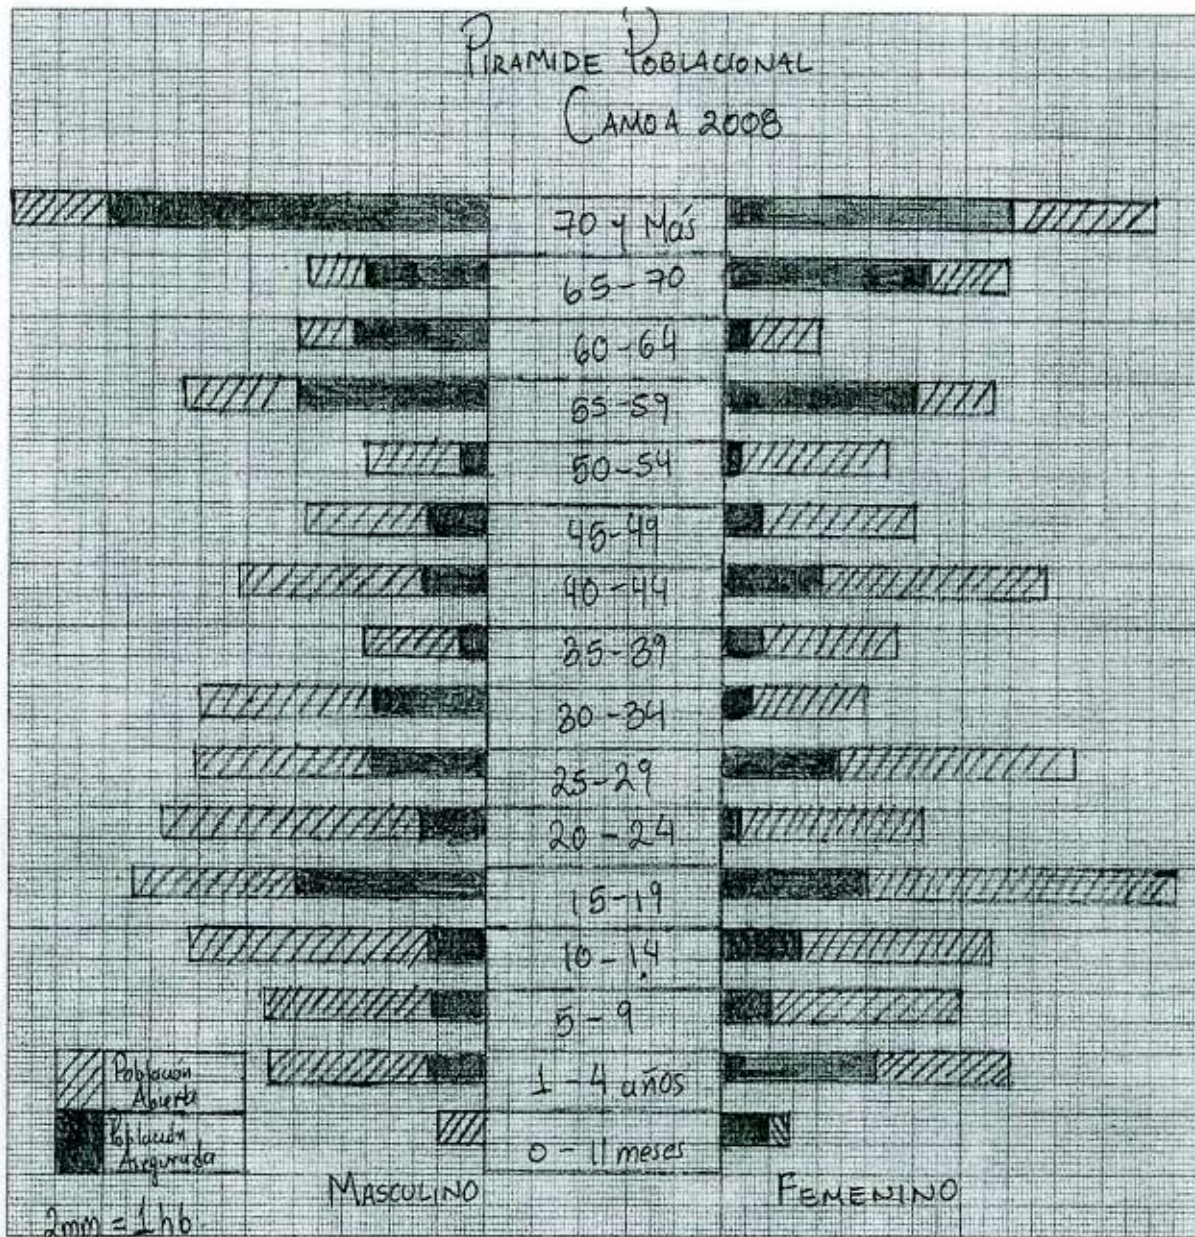 PIRAMIDE POBLACIONAL
CAMOA 2008
70 y Más
65-70
60-64
55-59
50-54
45-49
40-44
35-39
30-34
25-29
20-24
15-19
10-14
5-9
1-4 años
0-11 meses
Población
Abierta
Población
Asegurada
MASCULINO
FEMENINO
2mm = 1 hb